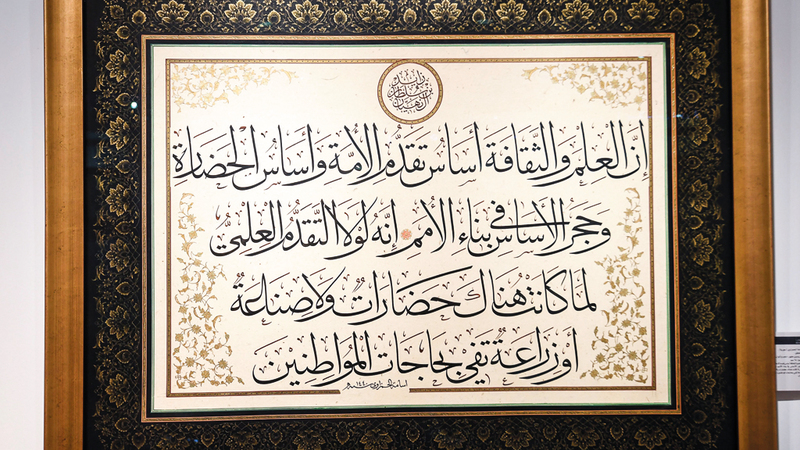 زايد بن سلطان آل نهيان
إنَّ العِلمَ والثَّقافَةَ أساسُ تقدُّمِ الأُمَّةِ وأساسُ الحَضارَةِ
وَحَجَرُ الأَساسِ في بِناءِ الأُممِ إنَّهُ لَولَا التَّقدُّمُ العِلميُّ
لما كانَت هُناكَ حَضاراتٌ ولَا صِناعَةٌ
أو زِراعَةٌ تفي بحاجاتِ المُواطِنينَ